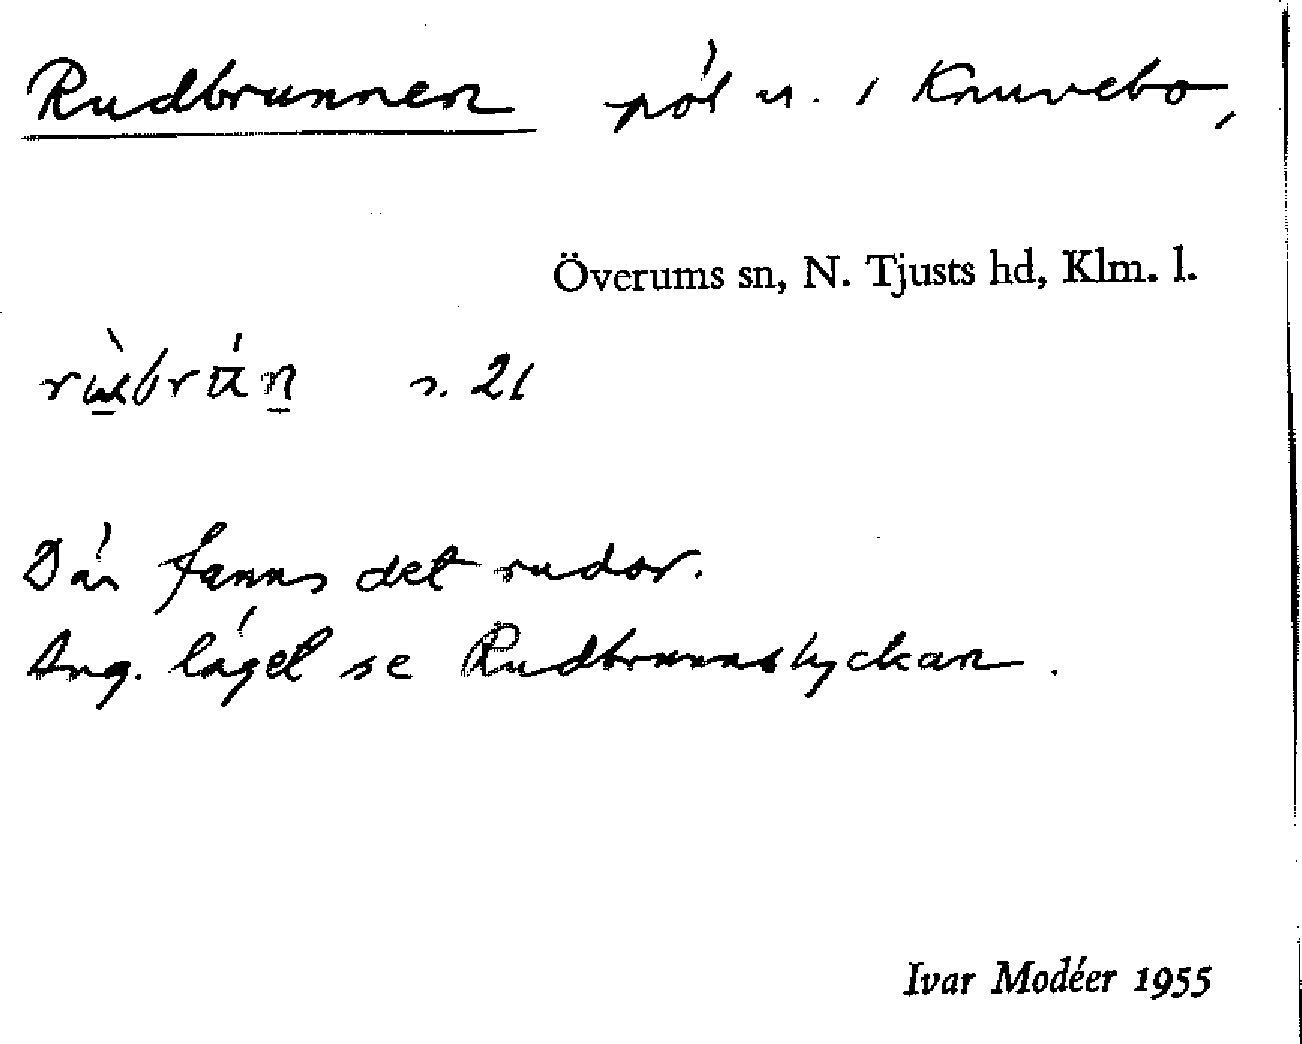 Rudbrunnen pöl n. i Knuvebo,
Överums sn, N. Tjusts hd, Klm. l.
s. 21
Där fanns det rudor.
Ang. läget se Rudbrunnslyckan.
Ivar Modéer 1955